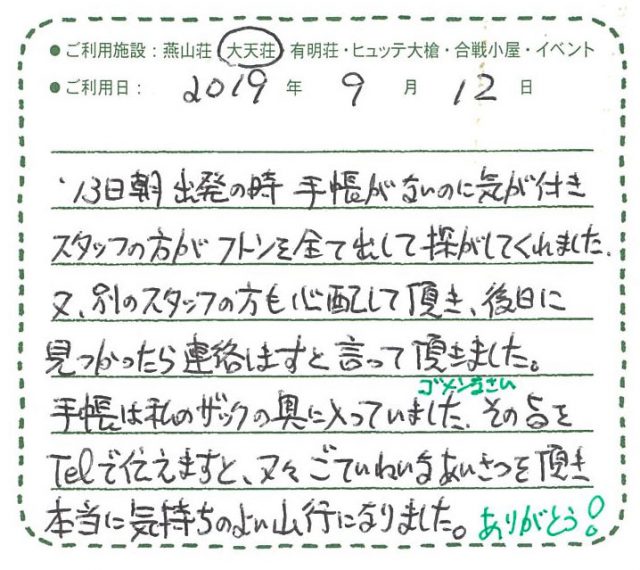 ●ご利用施設：燕山荘・大天荘・有明荘・ヒュッテ大槍・合戦小屋・イベント
●ご利用日： 2019 年 9 月 12 日
'13日朝 出発の時 手帳がないのに気が付き
スタッフの方が フトンを全て出して探がしてくれました.
又、別のスタッフの方も心配して頂き、後日に
見つかったら連絡しますと言って頂きました。
ゴメンなさい
手帳は私のザックの奥に入っていました. その旨を
Telで伝えますと、又々ごていねいなあいさつを頂き
本当に気持ちのよい山行になりました。ありがとう!